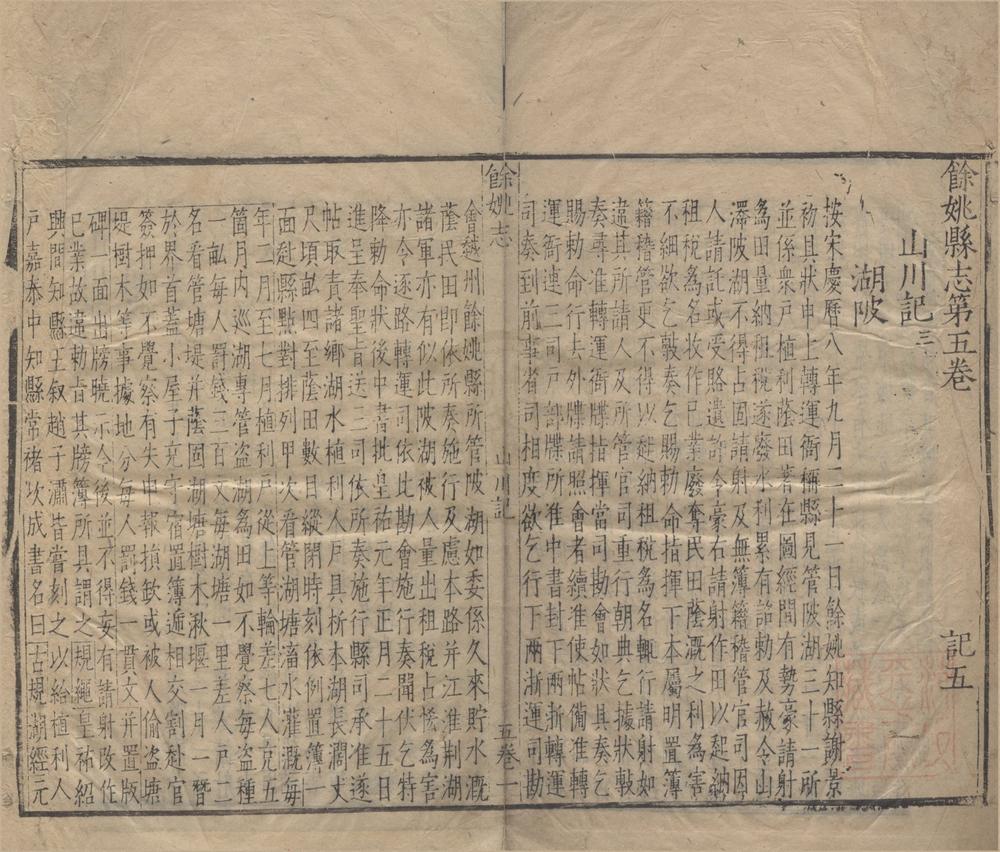 餘姚縣志第五卷 記五
山川記三 一
湖陂
按宋慶曆八年九月二十一日餘姚知縣謝景
初具狀申上轉運衙稱縣見管陂湖三十一所
並係衆戶植利蔭田著在圖經間有勢豪請射
為田量納租稅遂廢水利累有詔勅及赦令山
澤陂湖不得占固請射及無簿籍稽管官司因
人請託或受賂遺許令豪右請射作田以起納
租稅為名收作已業廢奪民田蔭溉之利久為害
不細欲乞敷奏乞賜勅命指揮下本屬明置簿
籍稽管更不得以起納租稅為名輒行請射如
違其所請人及所管官司重行朝典乞據狀敷
奏尋准轉運衙牒指揮當司勘會如狀具奏乞
賜勅命行去外牒請照會者續准使帖備准轉
運衙連三司戶部牒所准中書封下兩浙轉運
司奏到前事省司相度欲乞行下兩浙運司勘
餘姚志 山川記 五卷 一
會越州餘姚縣所管陂湖如委係久來貯水溉
蔭民田即依所奏施行及慮本路并江淮荆湖
諸軍亦有似此陂湖被人量出租稅占㨿為害
亦令逐路轉運司依此勘會施行奏聞伏乞特
降勅命狀後中書批皇祐元年正月二十五日
進呈奉聖旨送三司依所奏施行縣司承准逐
帖取責諸鄉湖水植利人戶具析本湖長濶丈
尺頃畝四至蔭田數目縱閉時刻依例置簿一
面赴縣點對排列甲次看管湖塘溜水灌溉每
年二月至七月植利戶從上等輪差七人充五
箇月内巡湖專管盜湖為田如不覺察每盜種
一畝每人罰錢三百文每湖塘一里差人戶二
名看管塘堤并蔭固湖塘樹木湫堰一月一替
於界首蓋小屋子充守宿置簿遞相交割赴官
簽押如不覺察有失申報損欽或被人偷盜塘
堤樹木等事據地分每人罰錢一貫文并置版
碑一面出牓曉示今後並不得妄有請射改作
已業故違勅旨其牓簿所具謂之規繩皇祐紹
興間知縣王叙趙子潚皆嘗刻之以給植利人
戶嘉泰中知縣常褚次成書名曰古規湖經元